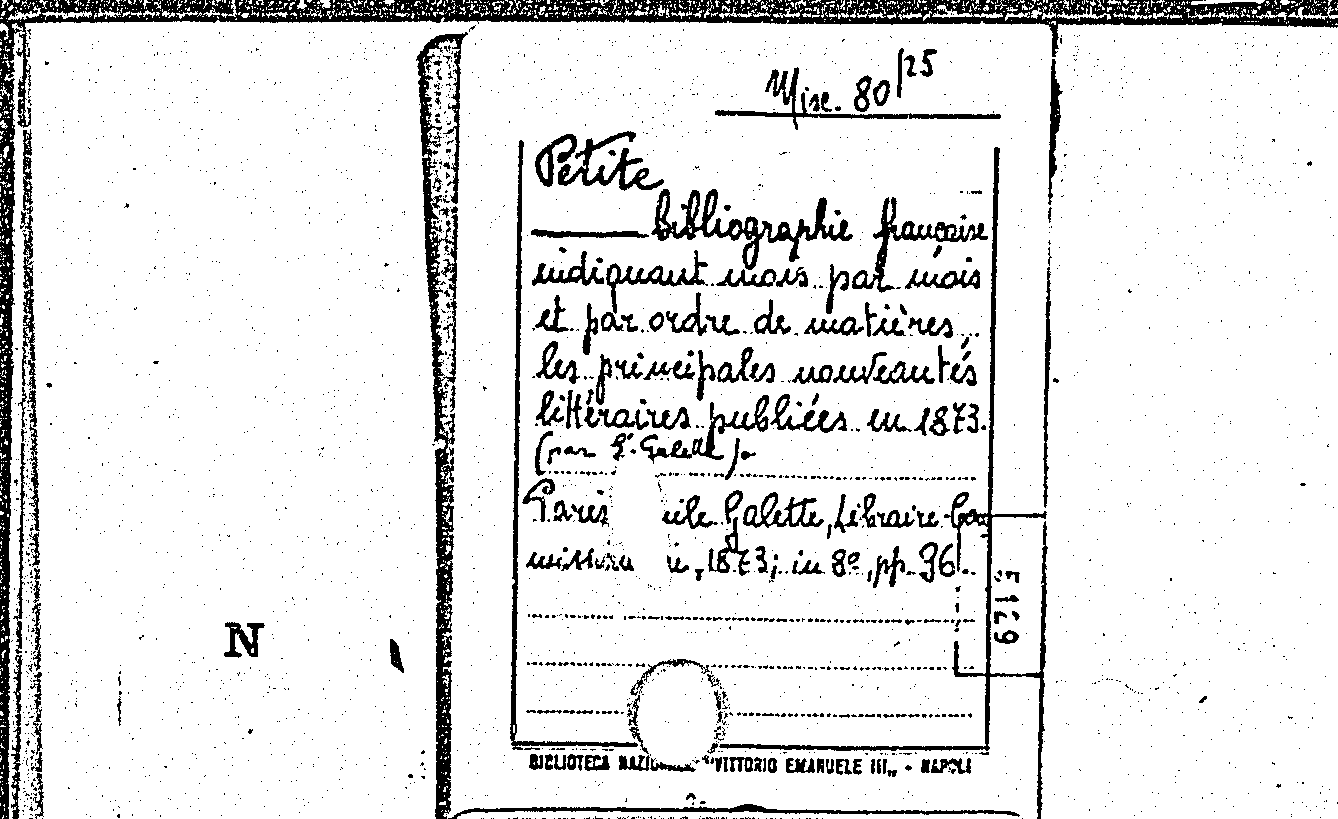 Misc. 80/25
Petite
bibliographie française
indiquant mois par mois
et par ordre de matières,
les principales nouveautés
littéraires publiées en 1873.
(par E. Galette).
Paris ile Galette, Libraire-Com
missionn 1873; in 8º, pp. 36.
6219
N
BIBLIOTECA NAZIONALE "VITTORIO EMANUELE III„ - NAPOLI